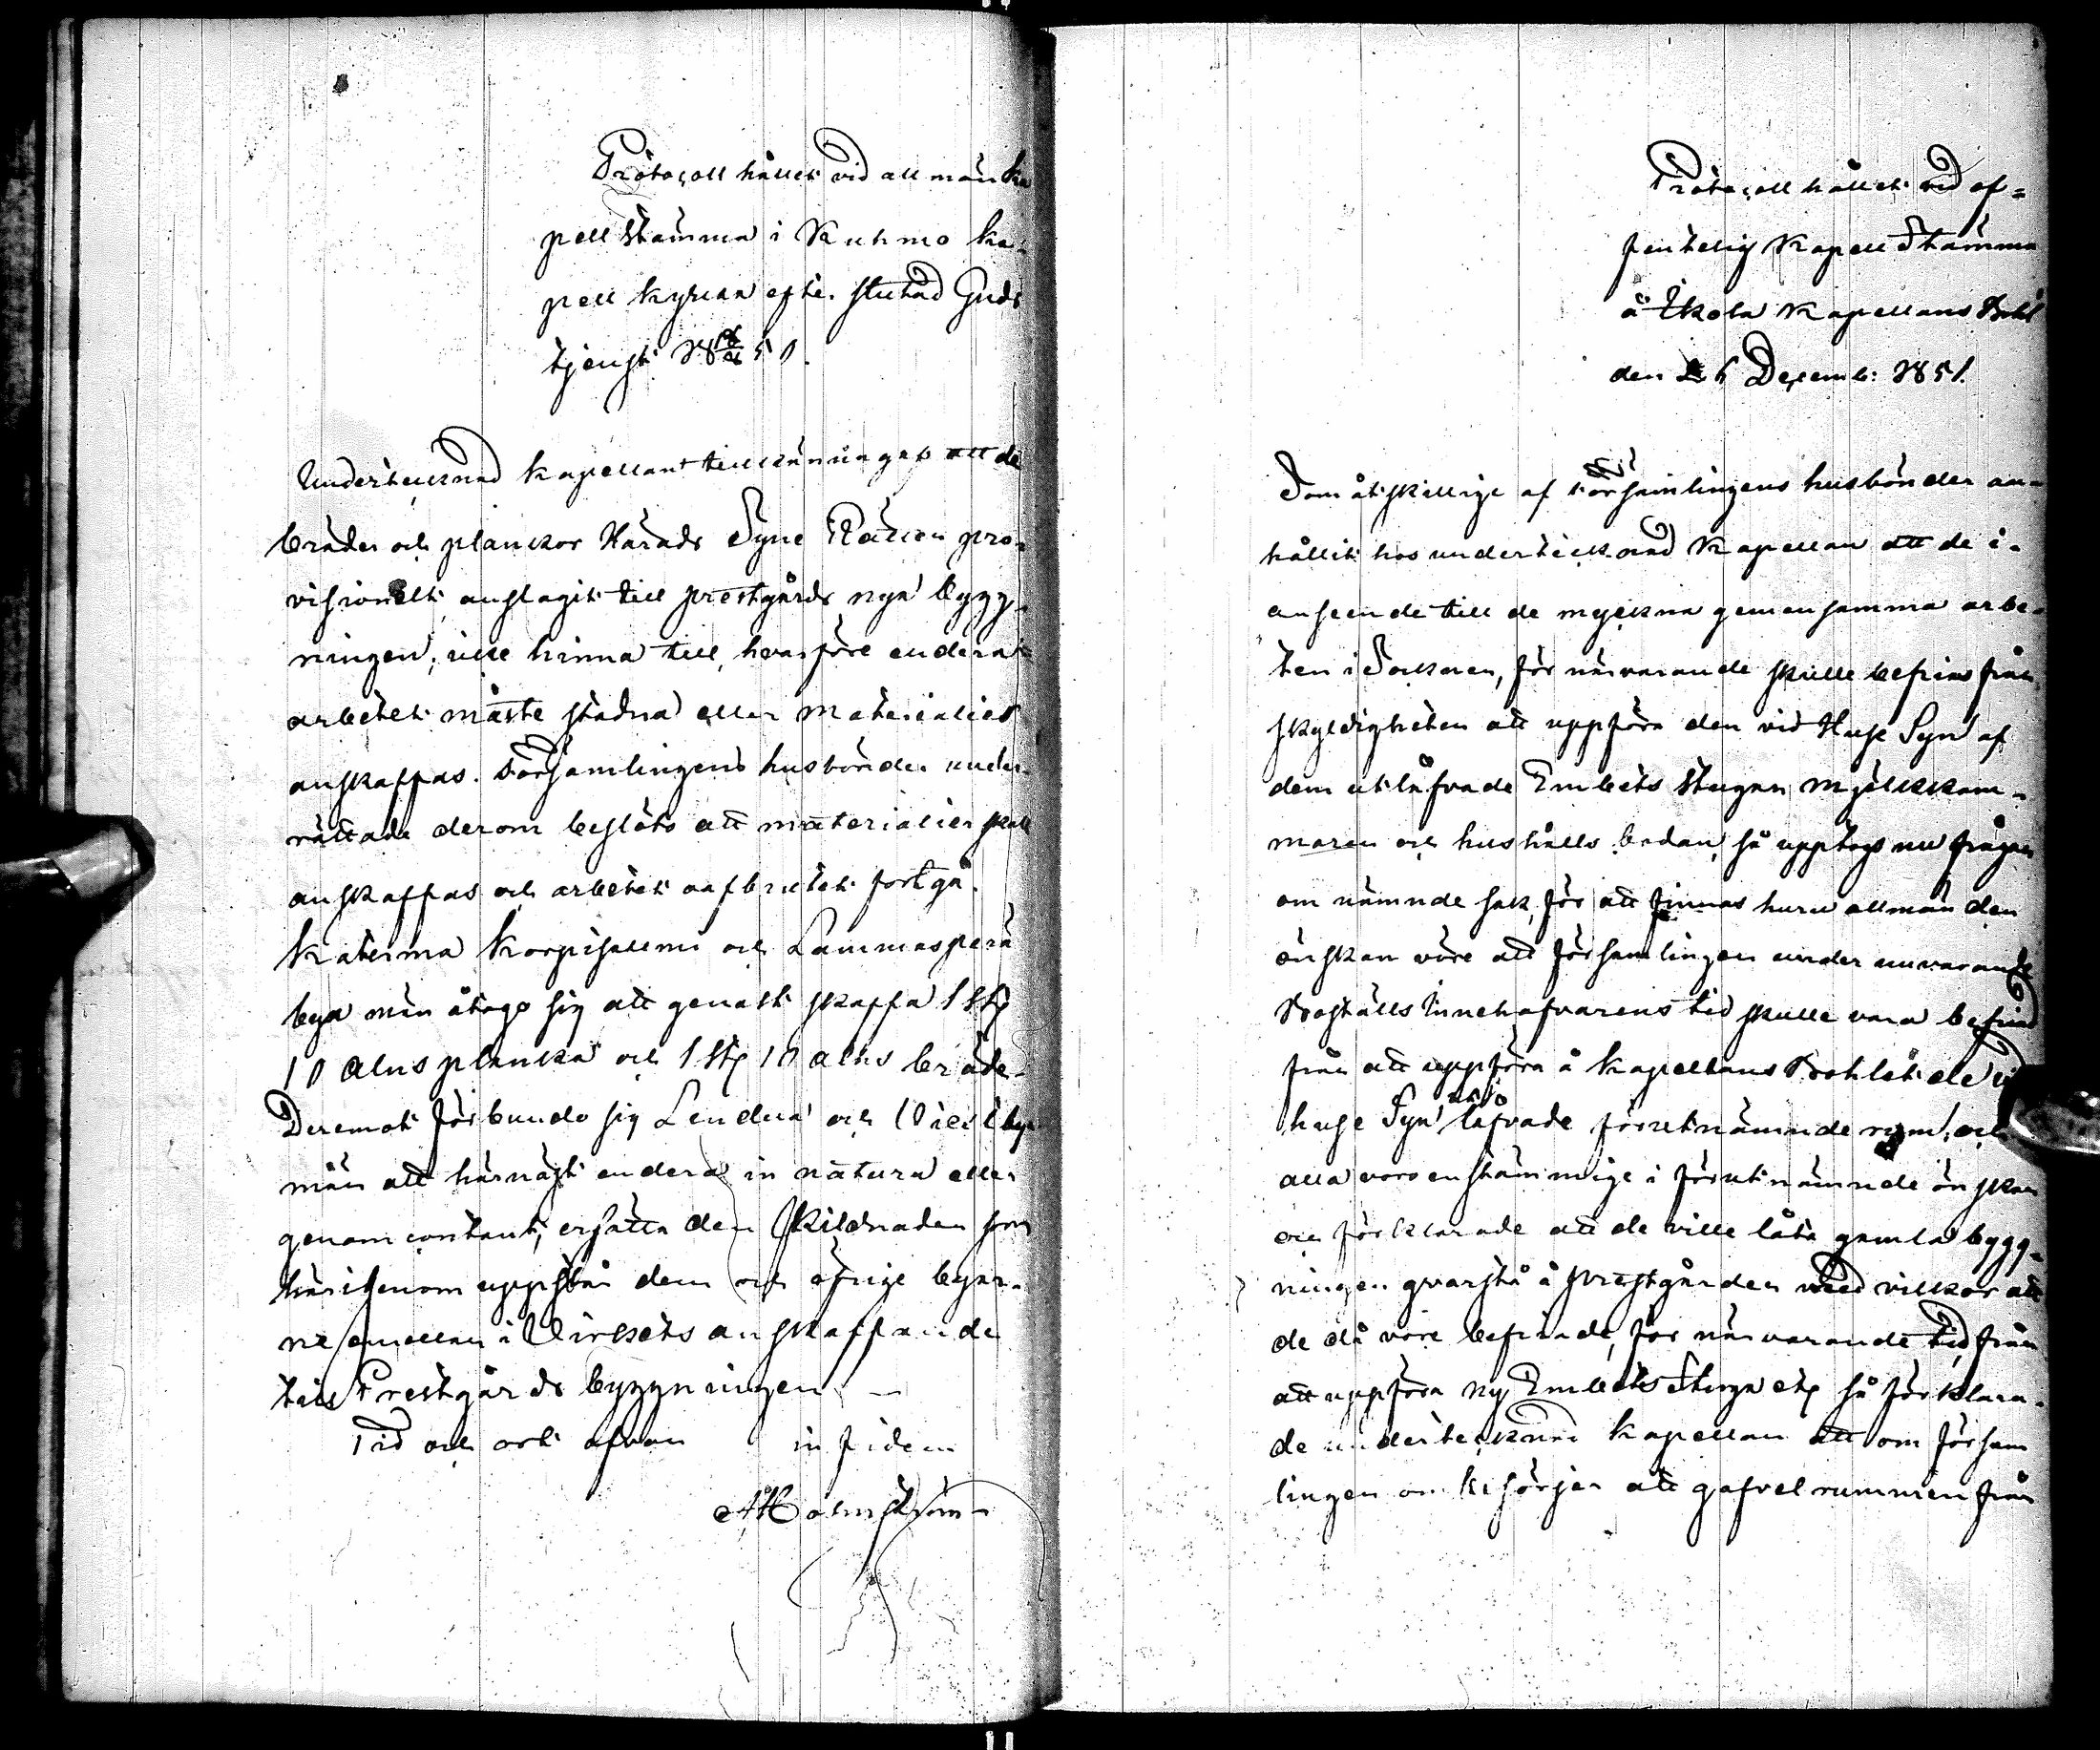 Protocoll hållet vid allmän ka
pell stämma i Kuhmo ka-
pell kyrkan efter slutad Guds
tjenst 18 51.
Undertecknad kapellan tillkännagaf att de
bräder och plankor Härads Syne Rätten pro-
visionelt anslagit till prestgårds nya bygg-
ningen, icke hinna till, hvarföre endera
arbetet måste stadna eller materialier
anskaffas. Församlingens husbönder under-
rättade derom beslöts att materialier skall
anskaffas och arbetet oafbrutet fortgå.
Katerma Korpisalmi och Lammasperä
bya män åtogo sig att genast skaffa 1 ltf
10 alns planka och 1 ltf 10 alns bräde.
Deremot förbundo sig Lendua och Viexi bya
män att härnäst endera in natura eller
genom contant, ersätta den skildnaden som
härigenom uppstår dem och öfrige byar-
ne emellan i Virkets anskaffande
till Prestgårds byggningen —
Tid och ort ofvan in fidem
A H Holmström
Protocoll hållet vid of-
fentelig Kapell Stämma
å Ekola Kapellans Bohl
den 26 Decemb: 1851.
Som åtskillige af Församlingens husbönder an-
hållit hos undertecknad Kapellan att de i
anseende till de myckna gemensamma arbe-
ten i Socknen, för närvarande skulle befrias från
skyldigheten att uppföra den vid Huse Syn af
dem utlåfvade Embets stugan mjölkkam-
maren och hushålls bodan, så upptogs nu frågan
om nämnde sak, för att finnas huru allmän den
önskan vore att församlingen under nuvarande
Boställs Innehafvarens tid skulle vara befriad
från att uppföra å Kapellans Bohlet de vid
huse Syn utlåfvade förutnämnde rum, och
alla voro enstämmige i förutnämnde önskan
och förklarade att de ville låta gamla bygg-
ningen qvarstå å prestgården med villkor att
de då vore befriade, för närvarande tid från
att uppföra ny Embets Stuga etc så förklara-
de undertecknad Kapellan att om försam
lingen om besörjer att gafvel rummen från